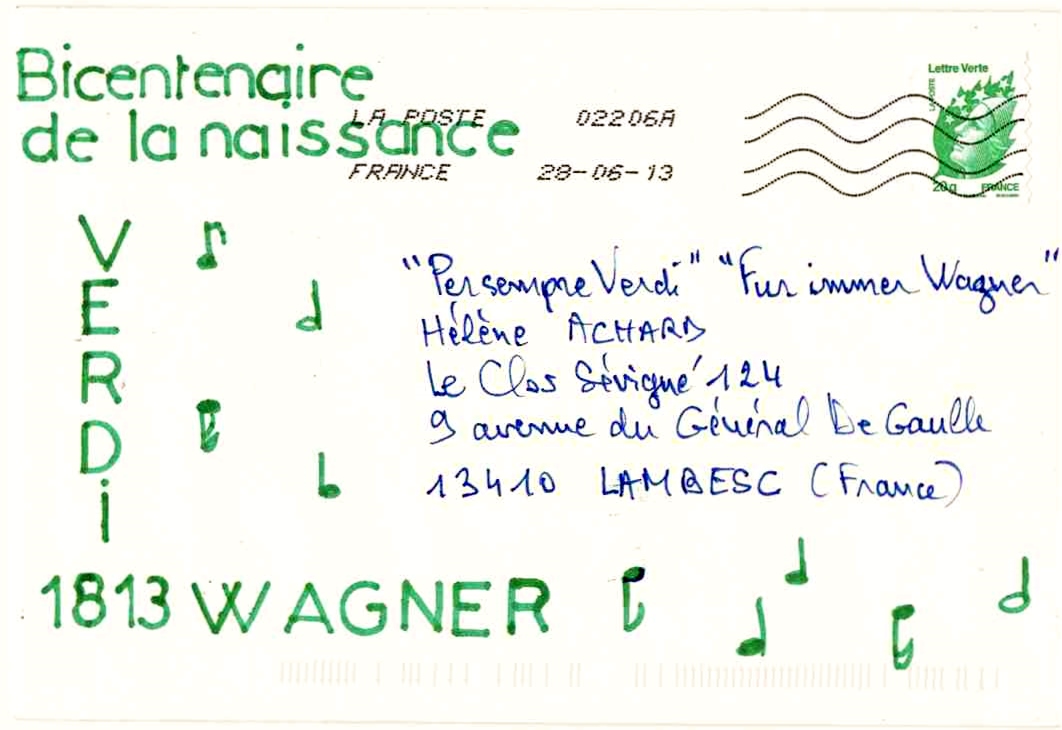 Bicentenaire
de la naissance
LA POSTE 02206A
FRANCE 28-06-13
Lettre Verte
LA POSTE
20g FRANCE
VERDi
"Per sempre Verdi" "Fur immer Wagner"
Hélène ACHARD
Le Clos Sévigné 124
9 avenue du Général De Gaulle
13410 LAMBESC (France)
1813 WAGNER